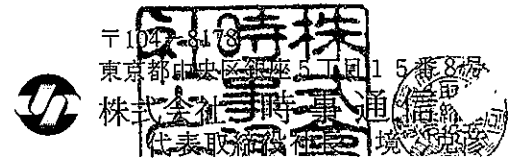 〒104-8178
東京都中央区銀座5丁目15番8号
株式会社 時事通信
代表取締役社長 境 克彦